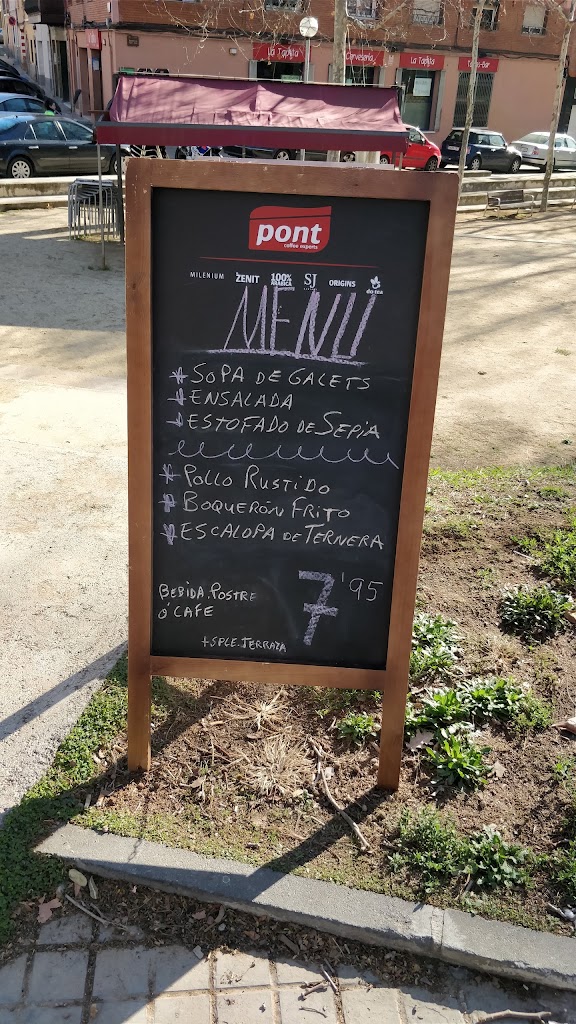 La Tapilla
Cervesería
La Tapilla
Tapas-Bar
pont
coffee experts
MILENIUM ZENIT 100% ARABICA SJ ORIGINS do-tea
MENÚ
* SOPA DE GALETS
* ENSALADA
* ESTOFADO DE SEPIA
* POLLO RUSTIDO
* BOQUERÓN FRITO
* ESCALOPA DE TERNERA
BEBIDA. POSTRE
Ó CAFE
7'95
+ SPLE. TERRAZA